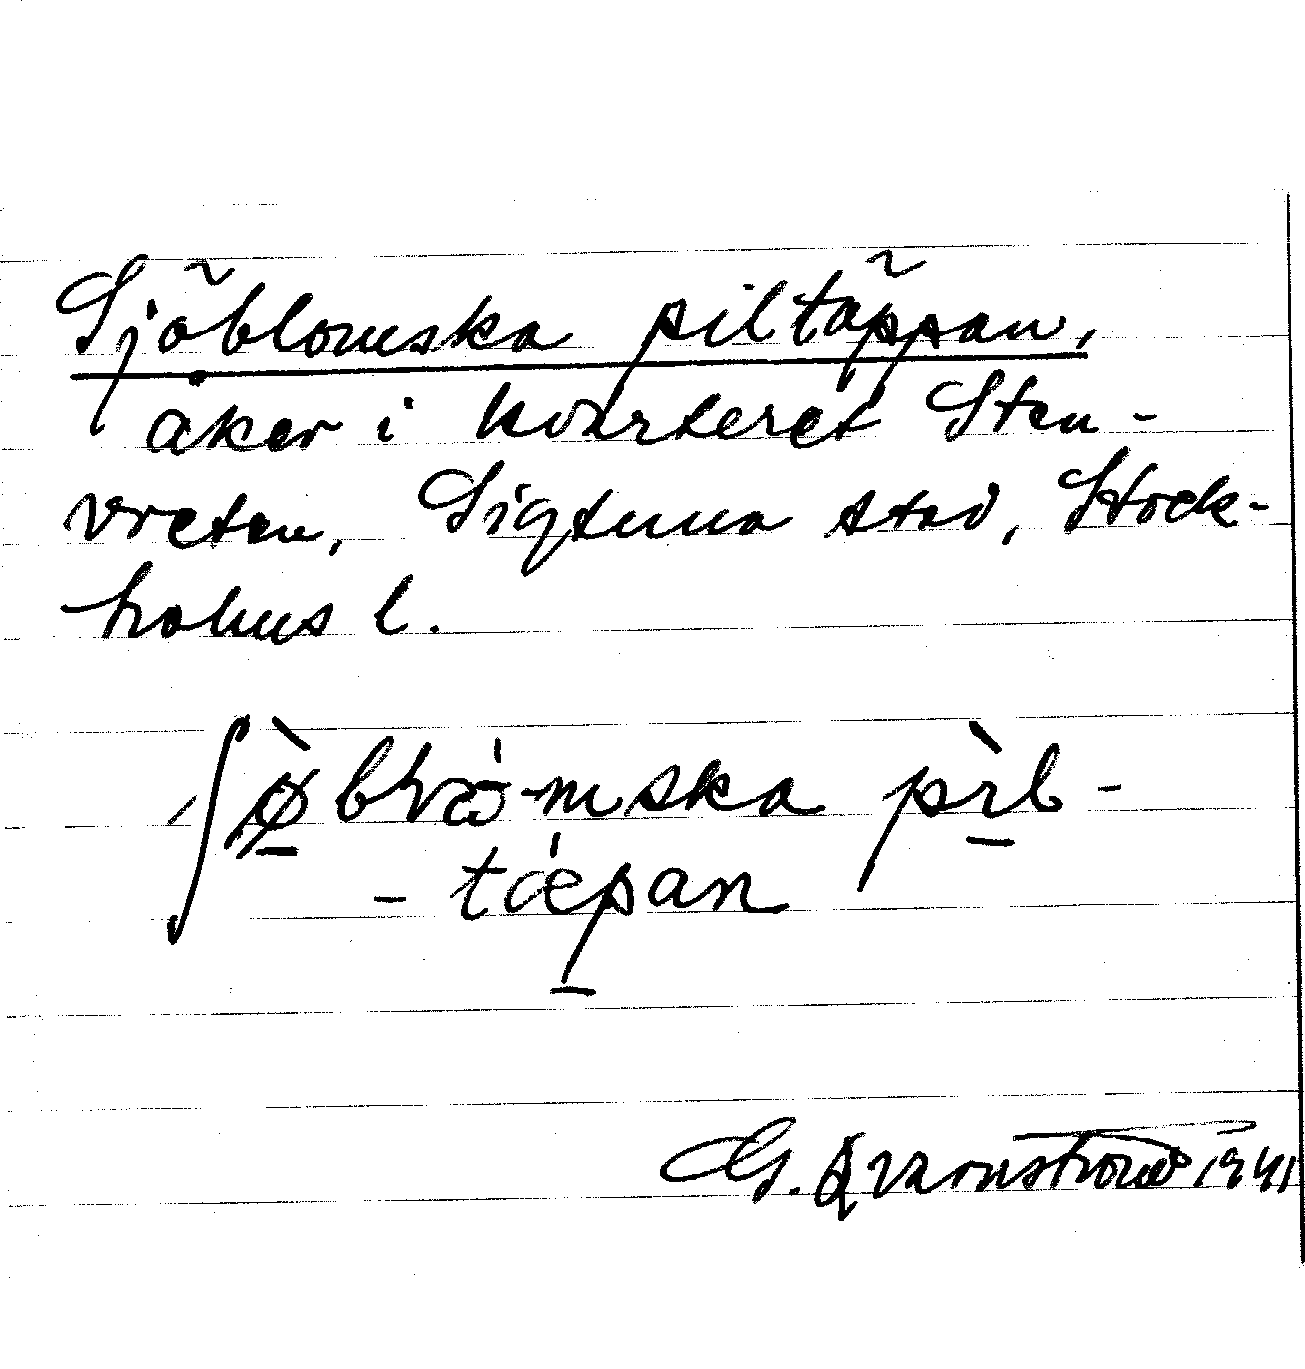 Sjöblomska piltäppan,
åker i kvarteret Sten-
vreten, Sigtuna stad, Stock-
holms l.
pil-
-tæpan
G. Qvarnström 1941